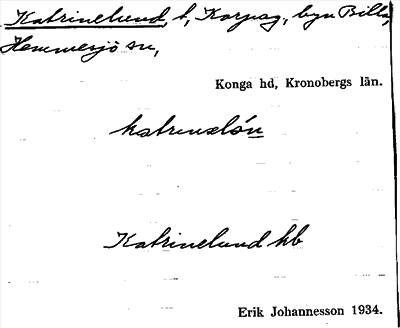 Katrinelund, t, Karpag, byn Billa,
Hemmesjö sn,
Konga hd, Kronobergs län.
katrinelón
Katrinelund kb
Erik Johannesson 1934.